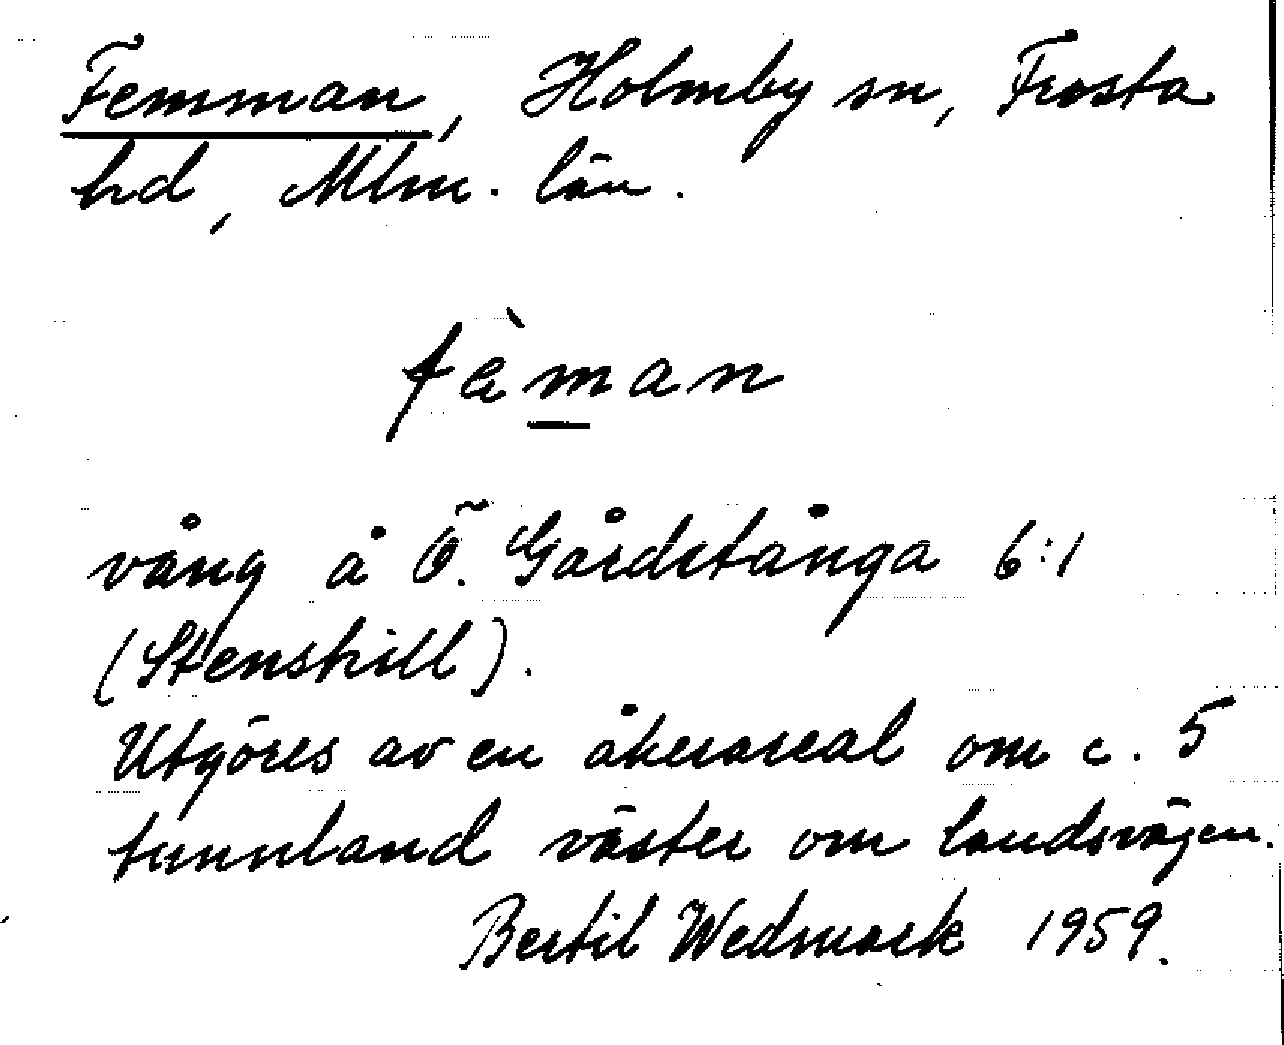 Femman, Holmby sn, Frosta
hd, Mlm. län.
fèman
vång å Ö. Gårdstånga 6:1
(Stenskill).
Utgöres av en åkerareal om c. 5
tunnland väster om landsvägen.
Bertil Wedmark 1959.